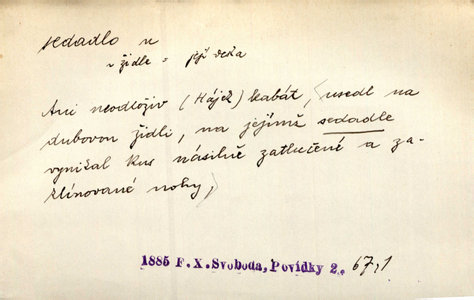 sedadlo n
u židle = její deska
Ani neodloživ (Hájek) kabát, usedl na
dubovou židli, na jejímž sedadle
vynikal kus násilně zatlučené a za-
klínované nohy,
1885 F. X. Svoboda, Povídky 2. 67,1